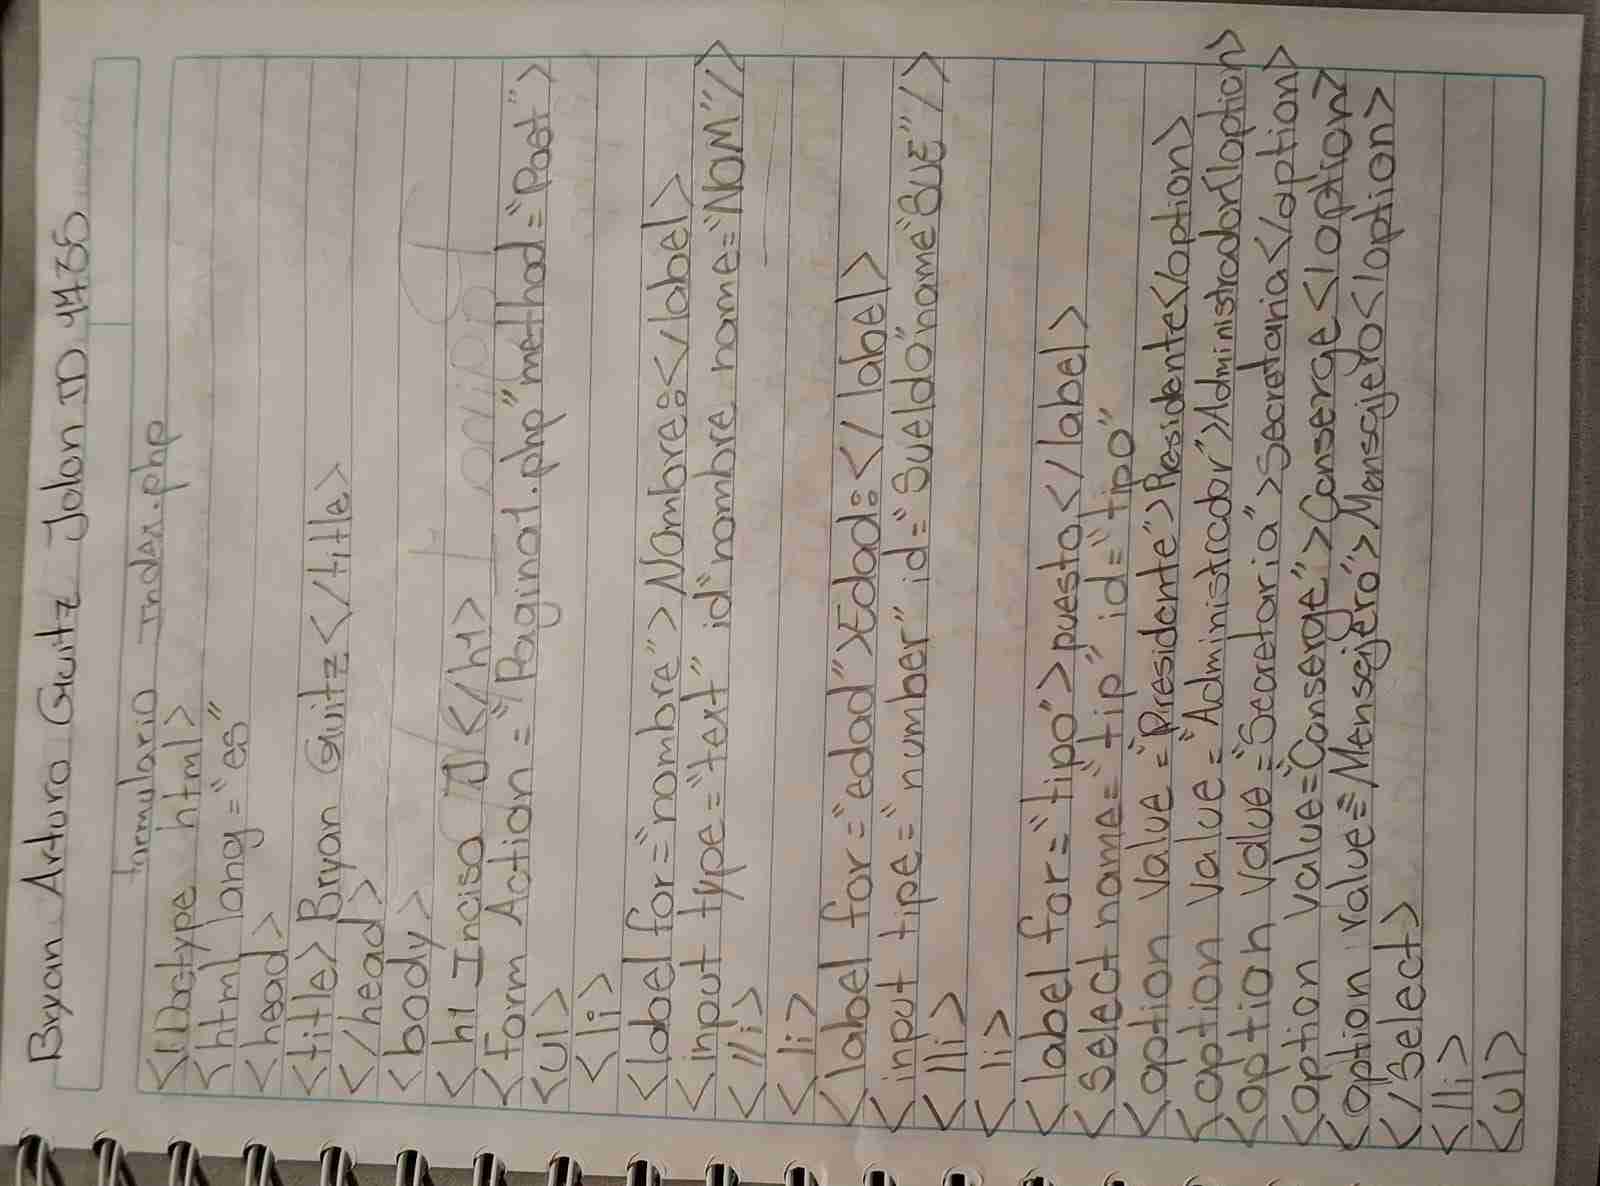 Bryan Arturo Guitz Jalon ID 4735
formulario Index.php
<!Doctype html>
<html lang="es"
<head>
<title>Bryan Guitz</title>
</head>
<body>
<h1 Inciso </h1>
<form Action="/Pagina1.php" method="Post">
<ul>
<li>
<label for="nombre">Nombre:</label>
<input type="text" id"nombre name="NOM"/>
</li>
<li>
<label for="edad">Edad:</label>
<input tipe="number" id="Sueldo"name"SUE"/>
</li>
<li>
<label for="tipo">puesto</label>
<Select name="tip" id="tipo"
<option value="Presidente">Presidente</option>
<option value="Administrador">Administrador</option>
<option value="Secretaria">Secretaria</option>
<option value="Conserge">Conserge</option>
<option value="Mensajero">Mensajero</option>
</Select>
</li>
<ul>